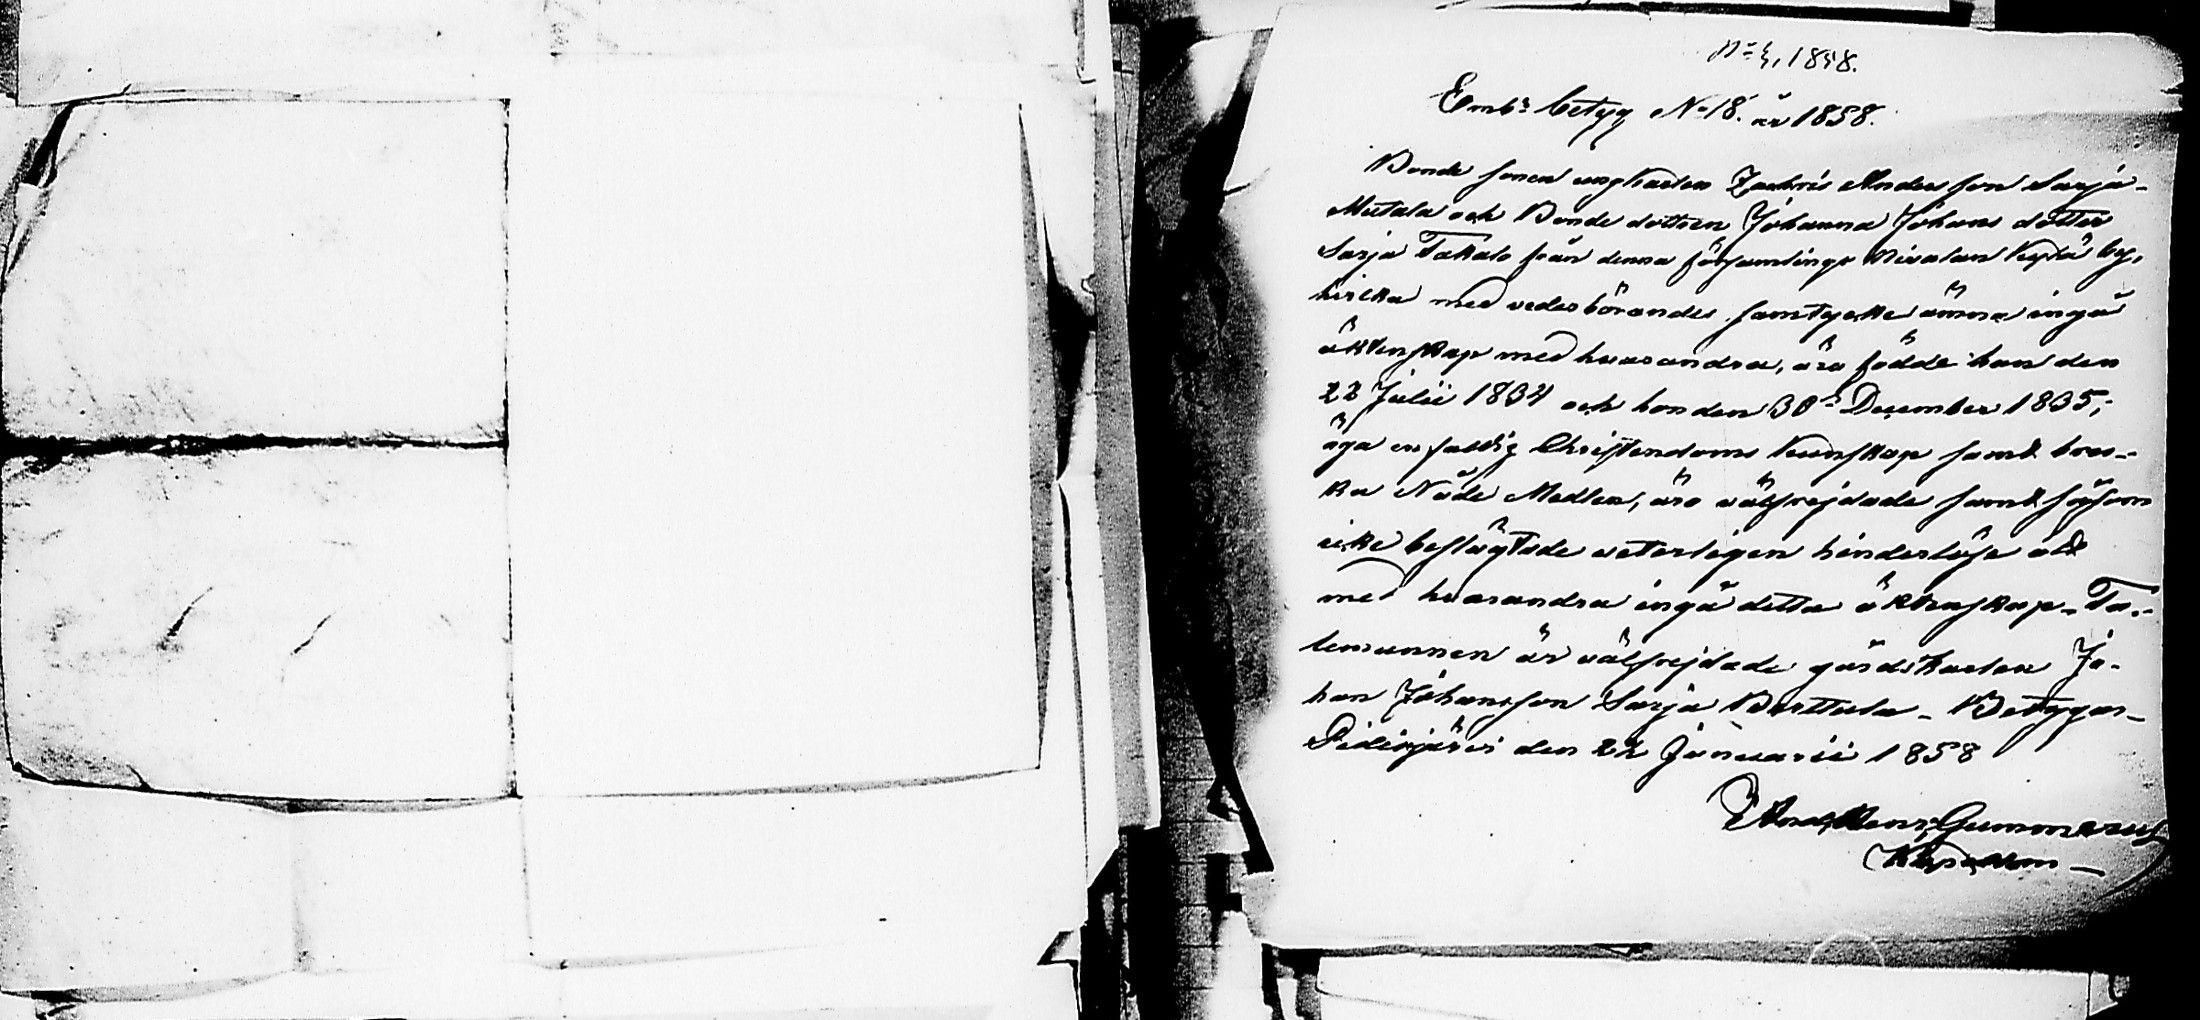 1858.
Emb:s betyg N:o 18. år 1858.
Bonde sonen ungkarlen Zachris Andersson Sarja-
Mutala och Bonde dottren Johanna Johans dotter
Sarja Takalo från denna församlings Nivalan Kylä by,
hvilka med vederbörandes samtycke ämna ingå
äktenskap med hvarandra, äro födde han den
22 Julii 1834 och hon den 30:de December 1835;
äga enfaldig Christendoms kunskap samt bru-
ka Nåde Medlen, äro välfrejdade samt såsom
icke beslägtade veterligen hinderlöse att
med hvarandra ingå detta äktenskap. Ta-
lemannen är välfrejdade gårdskarlen Jo-
han Johansson Sarja Perttula. Betygar
Pidisjärvi den 22 Januarii 1858
And. Henr. Gummerus
Kapellan